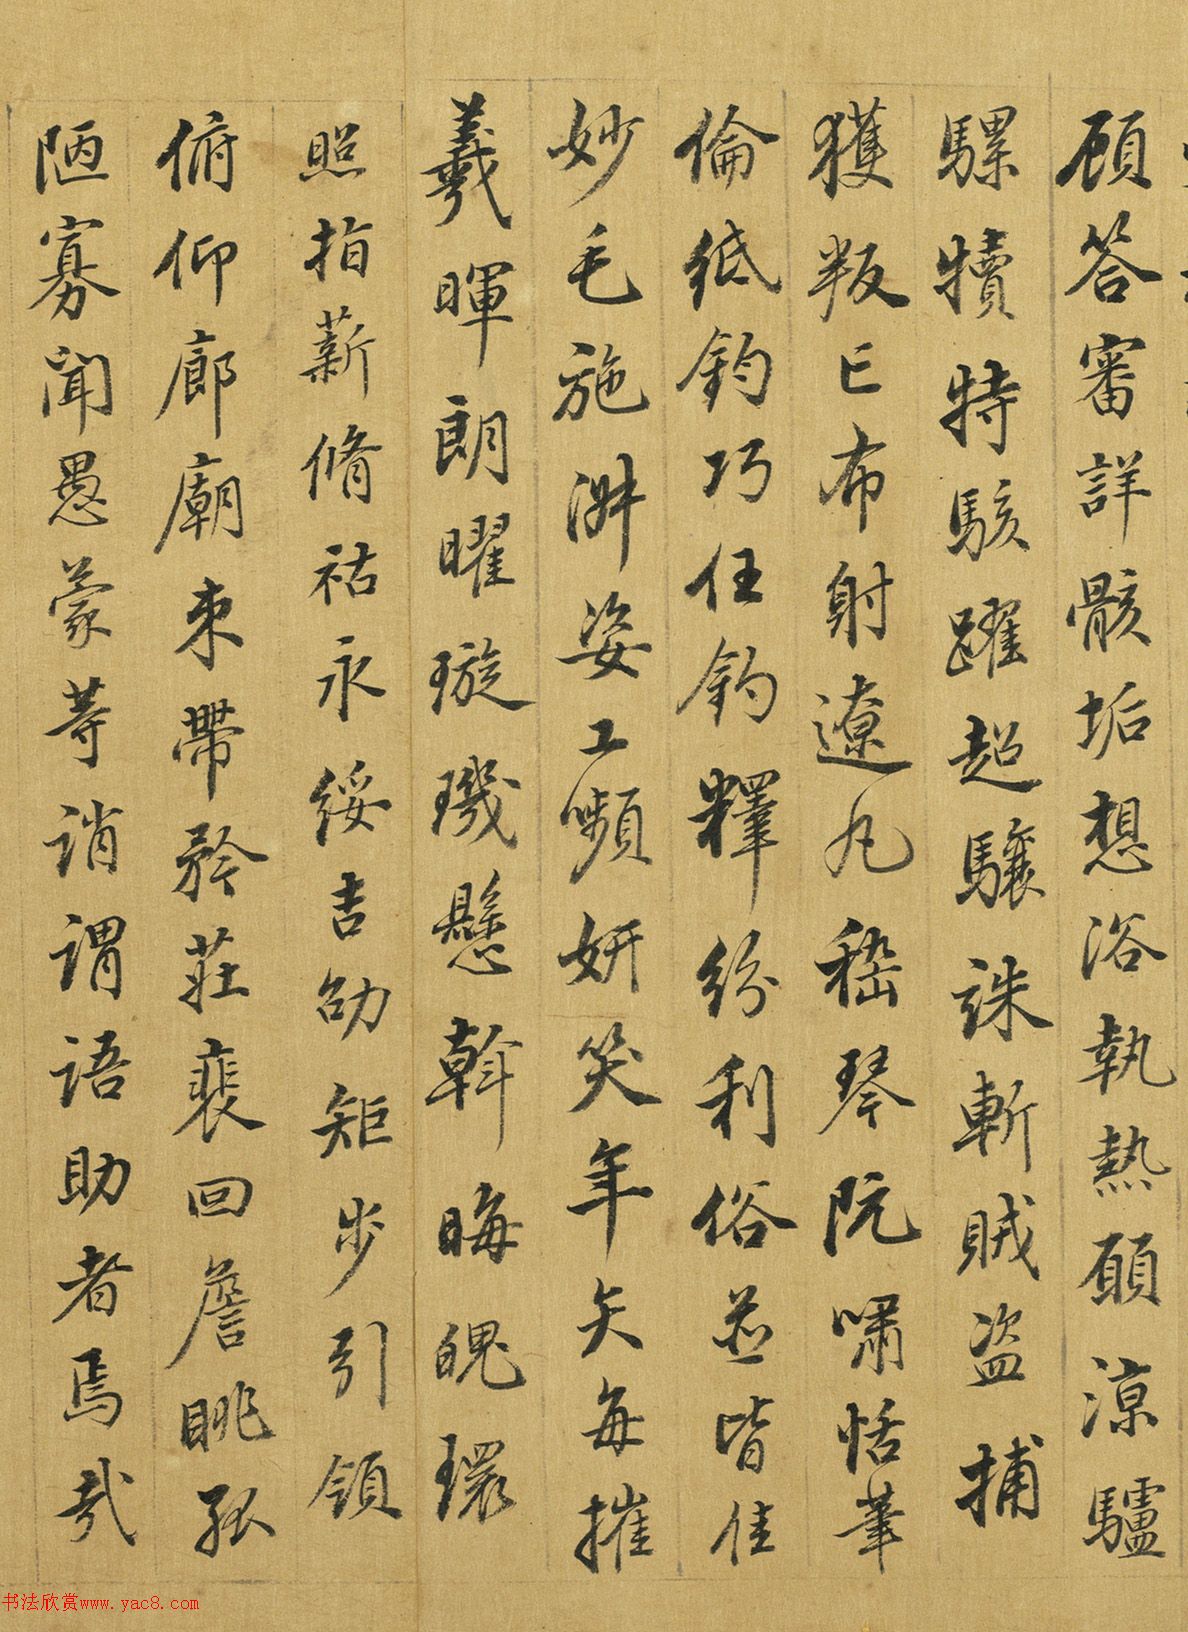 顧答審詳骸垢想浴執熱願涼驢
騾犢特駭躍超驤誅斬賊盜捕
獲叛亡布射遼丸嵇琴阮嘯恬筆
倫紙鈞巧任釣釋紛利俗並皆佳
妙毛施淑姿工嚬妍笑年矢每摧
羲暉朗曜璇璣懸斡晦魄環
照指薪脩祜永綏吉劭矩步引領
俯仰廊廟束帶矜莊裵回詹眺孤
陋寡聞愚蒙等誚謂語助者焉哉
书法欣赏www.yac8.com